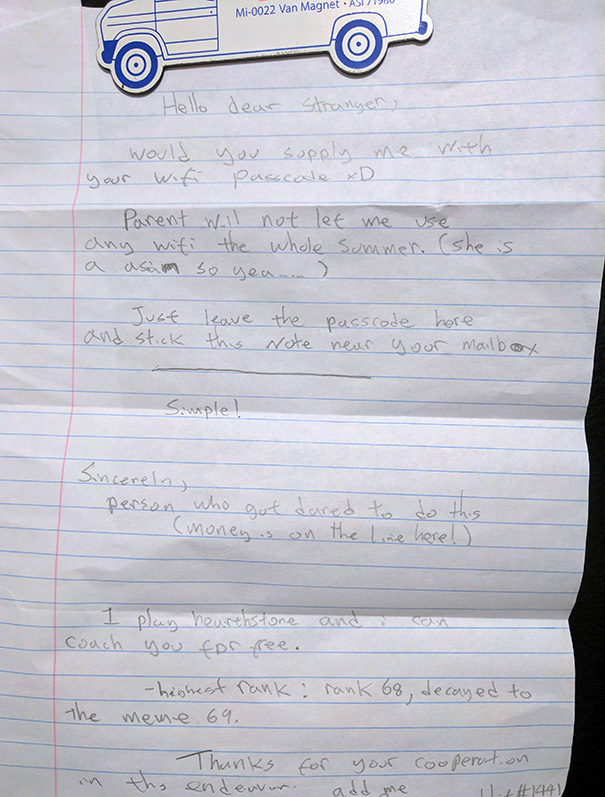 Mi-0022 Van Magnet · ASI 71980
Hello dear stranger,
would you supply me with
your wifi passcode xD
Parent will not let me use
any wifi the whole summer. (she is
a asian so yea.....)
Just leave the passcode here
and stick this note near your mailbox
Simple!
Sincereln,
person who got dared to do this
(money is on the line here!)
I play hearthstone and i can
coach you for free.
- highest rank: rank 68, decayed to
the meme 69.
Thanks for your cooperation
in ths endeavur. add me #1441